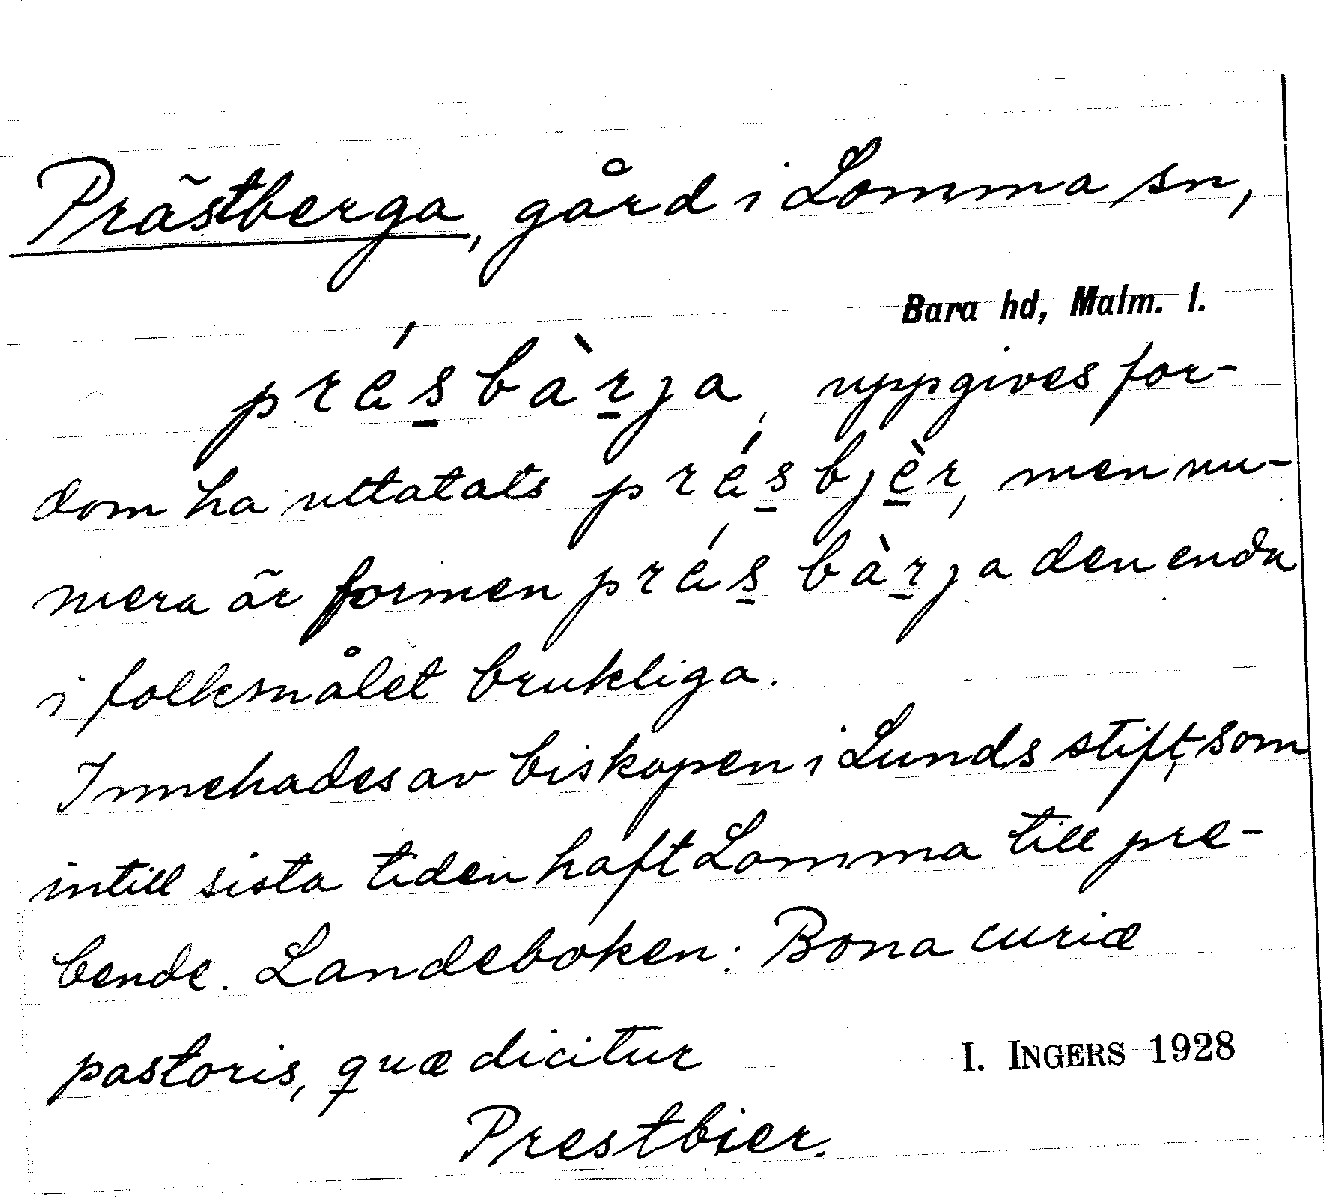 Prästberga, gård i Lomma sn,
Bara hd, Malm. l.
présbàrja, uppgives for-
dom ha uttatats présbjèr, men nu-
mera är formen présbàrja den enda
i folkmålet brukliga.
Innehades av biskopen i Lunds stift, som
intill sista tiden haft Lomma till pre-
bende. Landeboken: Bona curiæ
pastoris, quæ dicitur
I. INGERS 1928
Prestbier.